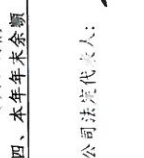 四、本年年末余额
公司法定代表人：